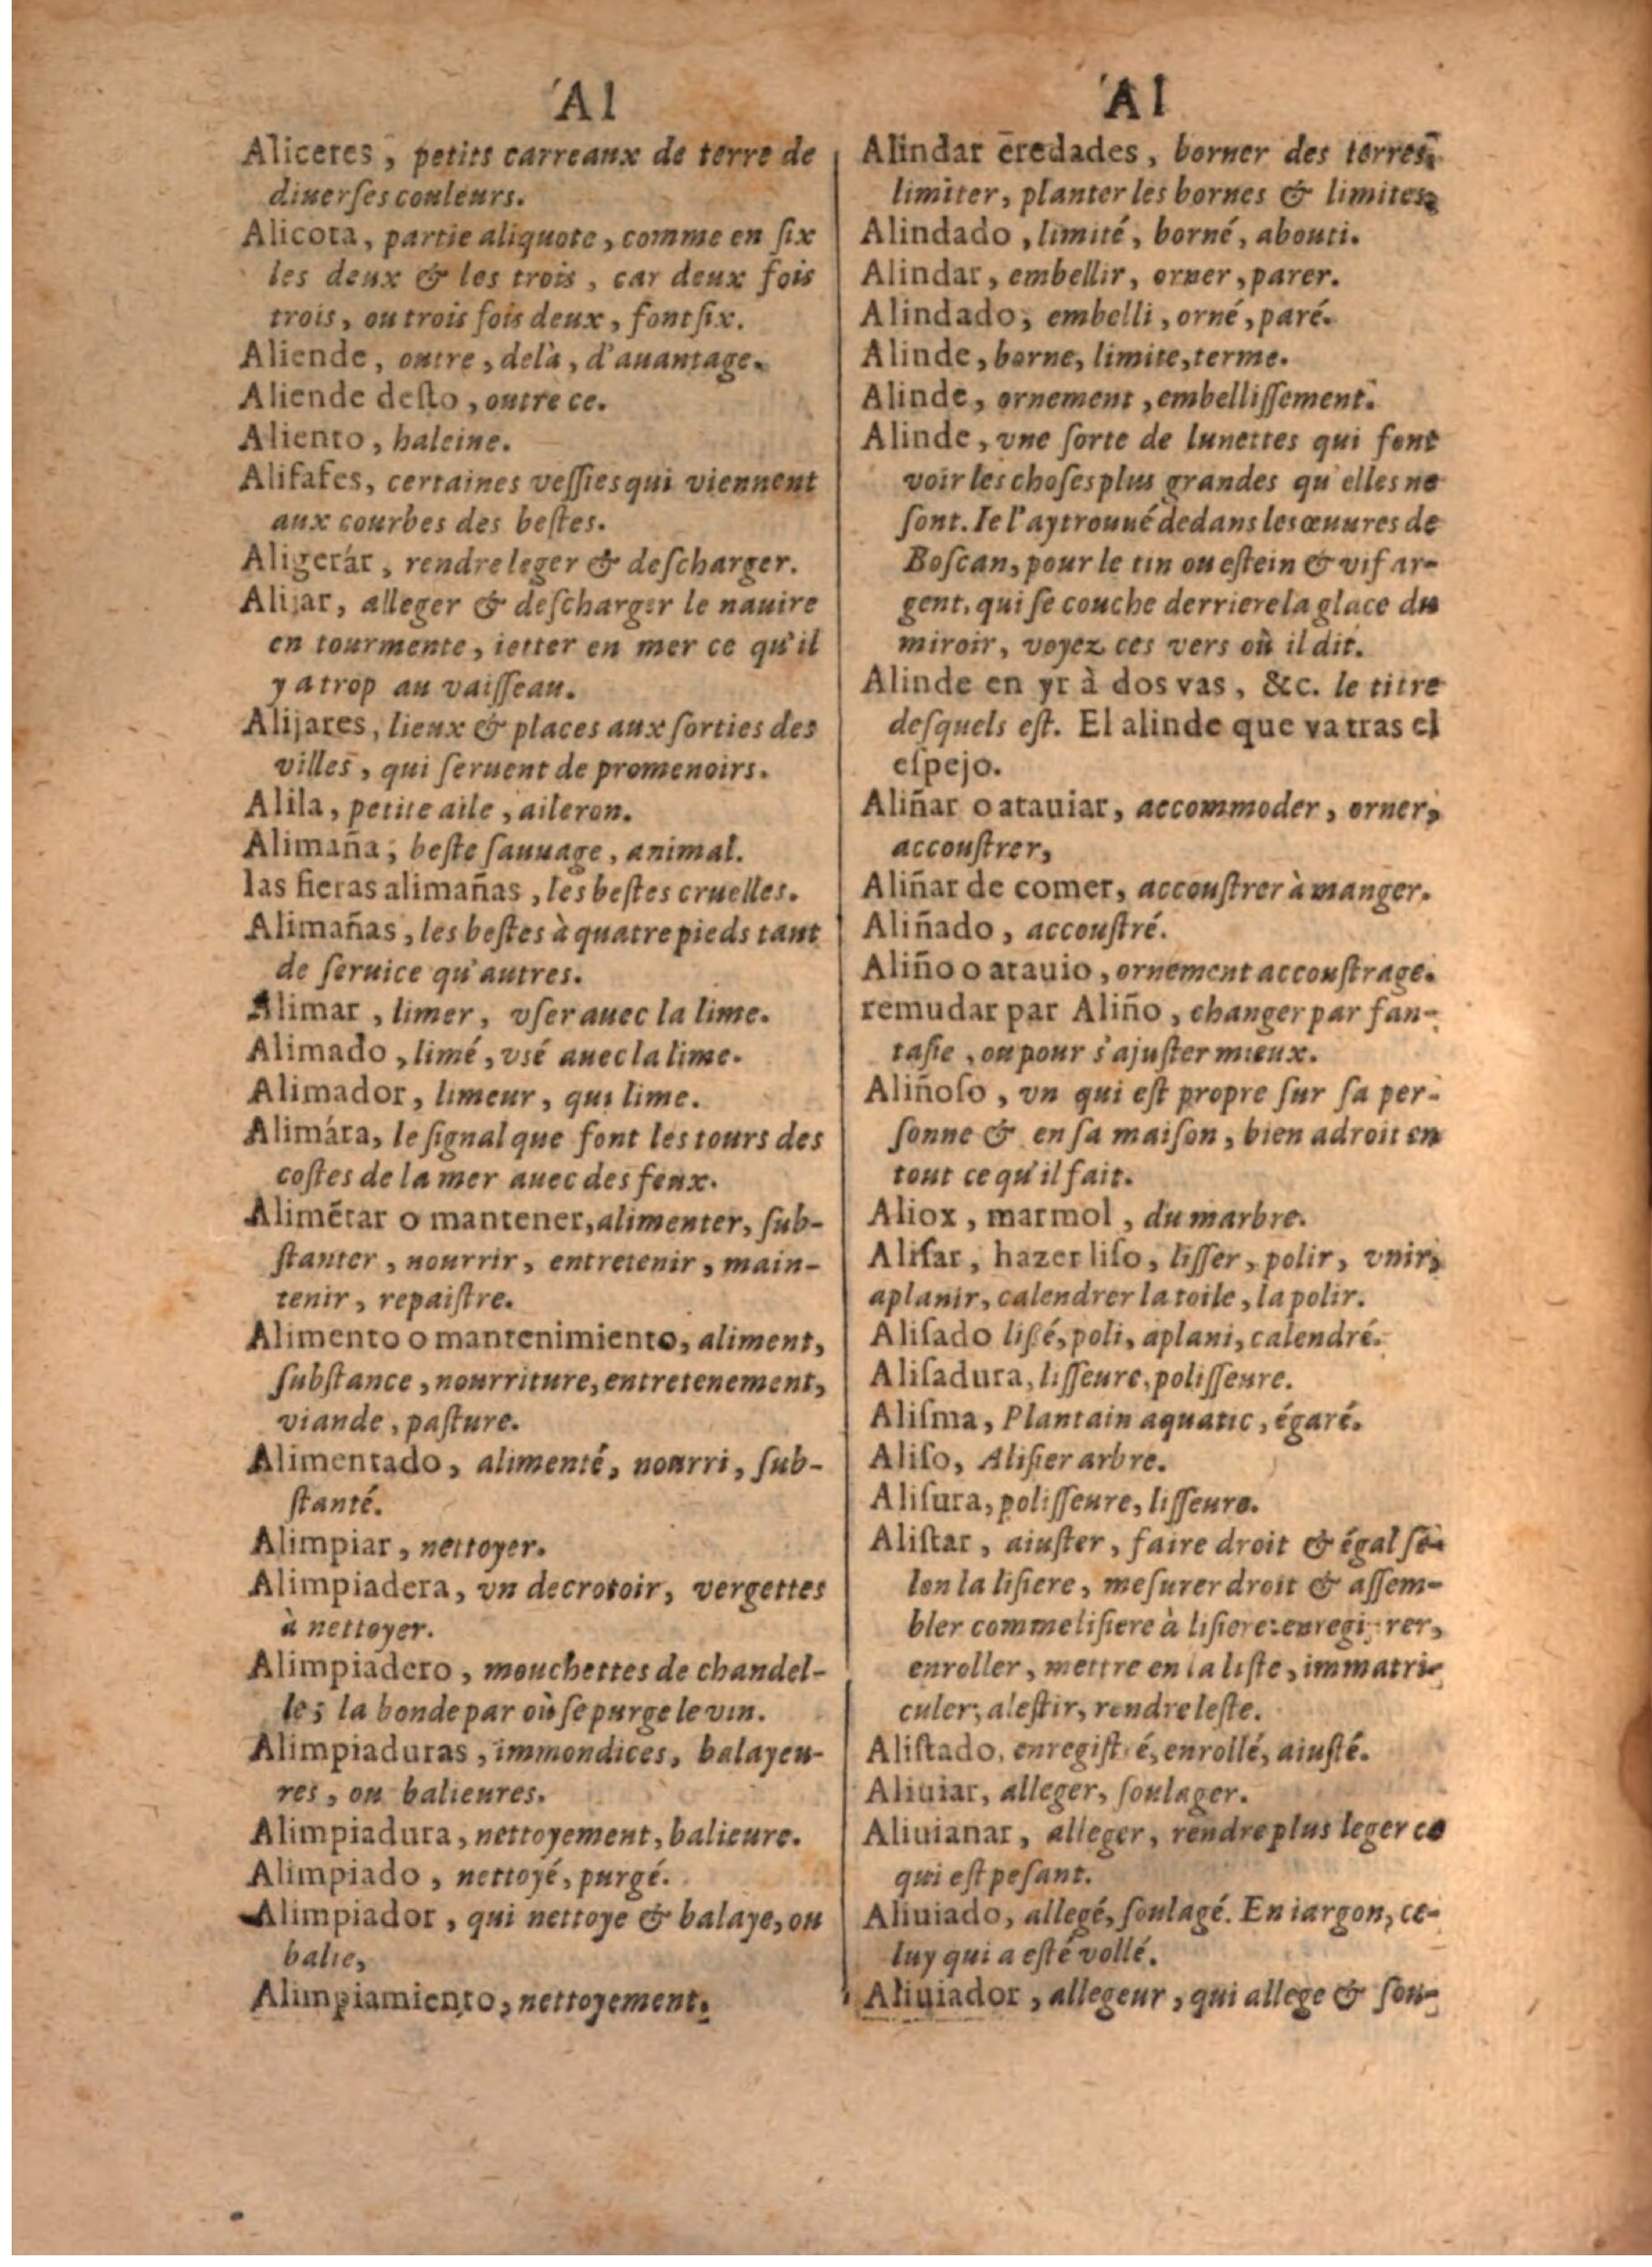 Al
Aliceres, petits carreaux de terre de
diuerſes couleurs.
Alicota, partie aliquote, comme en ſix
les deux & les trois, car deux fois
trois, ou trois fois deux, font ſix.
Aliende, outre, delà, d'auantage.
Aliende deſto, outre ce.
Aliento, haleine.
Alifafes, certaines veſſies qui viennent
aux courbes des beſtes.
Aligerár, rendre leger & deſcharger.
Alijar, alleger & deſcharger le nauire
en tourmente, ietter en mer ce qu'il
y a trop au vaiſſeau.
Alijares, lieux & places aux ſorties des
villes, qui ſeruent de promenoirs.
Alila, petite aile, aileron.
Alimaña, beſte ſauuage, animal.
las fieras alimañas, les beſtes cruelles.
Alimañas, les beſtes à quatre pieds tant
de ſeruice qu'autres.
Alimar, limer, vſer auec la lime.
Alimado, limé, vsé auec la lime.
Alimador, limeur, qui lime.
Alimára, le ſignal que font les tours des
coſtes de la mer auec des feux.
Alimẽtar o mantener, alimenter, ſub-
ſtanter, nourrir, entretenir, main-
tenir, repaiſtre.
Alimento o mantenimiento, aliment,
ſubſtance, nourriture, entretenement,
viande, paſture.
Alimentado, alimenté, nourri, ſub-
ſtanté.
Alimpiar, nettoyer.
Alimpiadera, vn decrotoir, vergettes
à nettoyer.
Alimpiadero, mouchettes de chandel-
le; la bonde par où ſe purge le vin.
Alimpiaduras, immondices, balayeu-
res, ou balieures.
Alimpiadura, nettoyement, balieure.
Alimpiado, nettoyé, purgé.
Alimpiador, qui nettoye & balaye, ou
balie,
Alimpiamiento, nettoyement.
Al
Alindar ēredades, borner des terres,
limiter, planter les bornes & limites,
Alindado, limité, borné, abouti.
Alindar, embellir, orner, parer.
Alindado, embelli, orné, paré.
Alinde, borne, limite, terme.
Alinde, ornement, embelliſſement.
Alinde, vne ſorte de lunettes qui font
voir les choſes plus grandes qu'elles ne
ſont. Ie l'ay trouué dedans les œuures de
Boſcan, pour le tin ou eſtein & vif ar-
gent, qui ſe couche derriere la glace du
miroir, voyez ces vers où il dit.
Alinde en yr à dos vas, &c. le titre
deſquels eſt. El alinde que va tras el
eſpejo.
Aliñar o atauiar, accommoder, orner,
accouſtrer,
Aliñar de comer, accouſtrer à manger.
Aliñado, accouſtré.
Aliño o atauio, ornement accouſtrage.
remudar par Aliño, changer par fan-
taſie, ou pour s'ajuſter mieux.
Aliñoſo, vn qui eſt propre ſur ſa per-
ſonne & en ſa maiſon, bien adroit en
tout ce qu'il fait.
Aliox, marmol, du marbre.
Aliſar, hazer liſo, liſſer, polir, vnir,
aplanir, calendrer la toile, la polir.
Aliſado liſſé, poli, aplani, calendré.
Aliſadura, liſſeure, poliſſeure.
Aliſma, Plantain aquatic, égaré.
Aliſo, Aliſier arbre.
Aliſura, poliſſeure, liſſeure.
Aliſtar, aiuſter, faire droit & égal ſe-
lon la liſiere, meſurer droit & aſſem-
bler comme liſiere à liſiere: enregiſtrer,
enroller, mettre en la liſte, immatri-
culer; aleſtir, rendre leſte.
Aliſtado, enregiſtré, enrollé, aiuſté.
Aliuiar, alleger, ſoulager.
Aliuianar, alleger, rendre plus leger ce
qui eſt peſant.
Aliuiado, allegé, ſoulagé. En iargon, ce-
luy qui a eſté vollé.
Aliuiador, allegeur, qui allege & ſou-